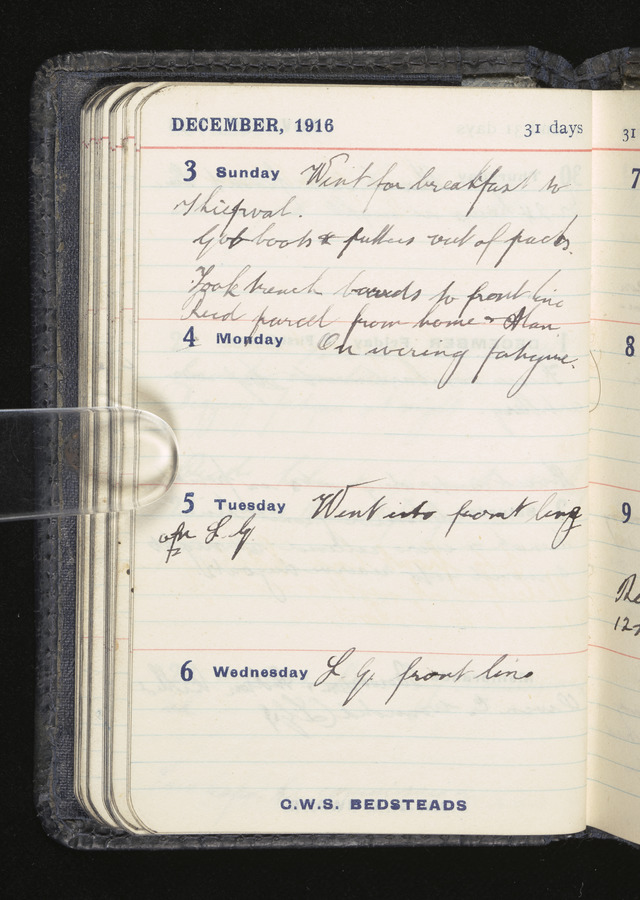 DECEMBER, 1916 31 days
3 Sunday Went for breakfast to
Thiepval.
Got boots & puttees out of packs.
Took trench boards to front line
Recd parcel from home & Alan
4 Monday On wiring fatigue.
5 Tuesday Went into front line
L.G.
6 Wednesday L G. front line
C.W.S. BEDSTEADS
31
7
8
9
12